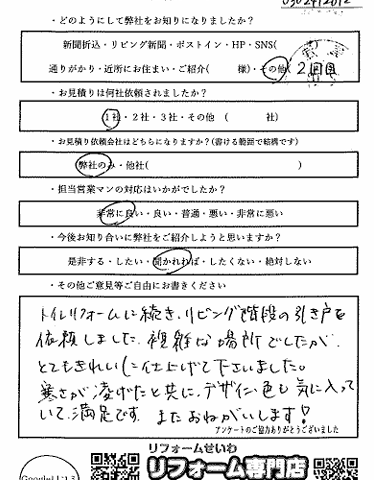 0302412012
・どのようにして弊社をお知りになりましたか？
新聞折込・リビング新聞・ポストイン・HP・SNS(
通りがかり・近所にお住まい・ご紹介( 様)・その他( 2回目
・お見積りは何社依頼されましたか？
1社・2社・3社・その他 ( 社)
・お見積り依頼会社はどちらになりますか？(書ける範囲で結構です)
弊社のみ・他社( )
・担当営業マンの対応はいかがでしたか？
非常に良い・良い・普通・悪い・非常に悪い
・今後お知り合いに弊社をご紹介しようと思いますか？
是非する・したい・聞かれれば・したくない・絶対しない
・その他ご意見等ご自由にお書きください
トイレリフォームに続き、リビング階段の引き戸を
依頼しました。複雑な場所でしたが、
とてもきれいに仕上げて下さいました。
寒さが凌げたと共に、デザイン、色も気に入って
いて満足です。またおねがいします!
アンケートのご協力ありがとうございました
リフォームせいわ
リフォーム専門店
Google口コミ